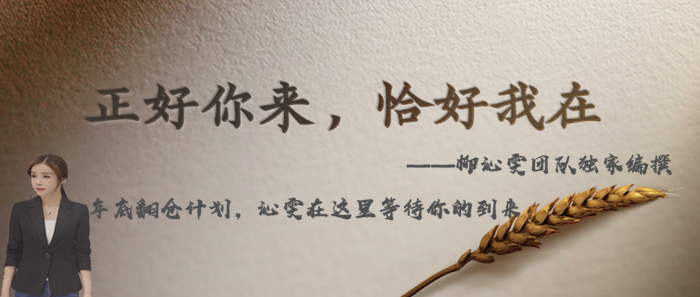 正好你来，恰好我在
——柳沁雯团队独家编撰
年底翻仓计划，沁雯在这里等待你的到来